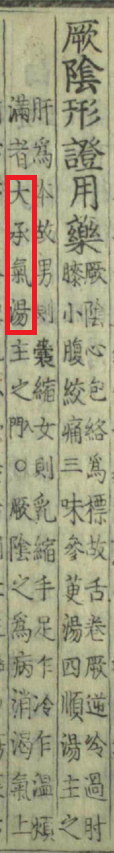 厥陰形證用藥厥陰心包絡爲標故舌卷厥逆冷過肘
膝小腹絞痛三味參萸湯四順湯主之
肝爲本故男則囊縮女則乳縮手足乍冷乍溫煩
滿者大承氣湯主之入門○厥陰之爲病消渴氣上